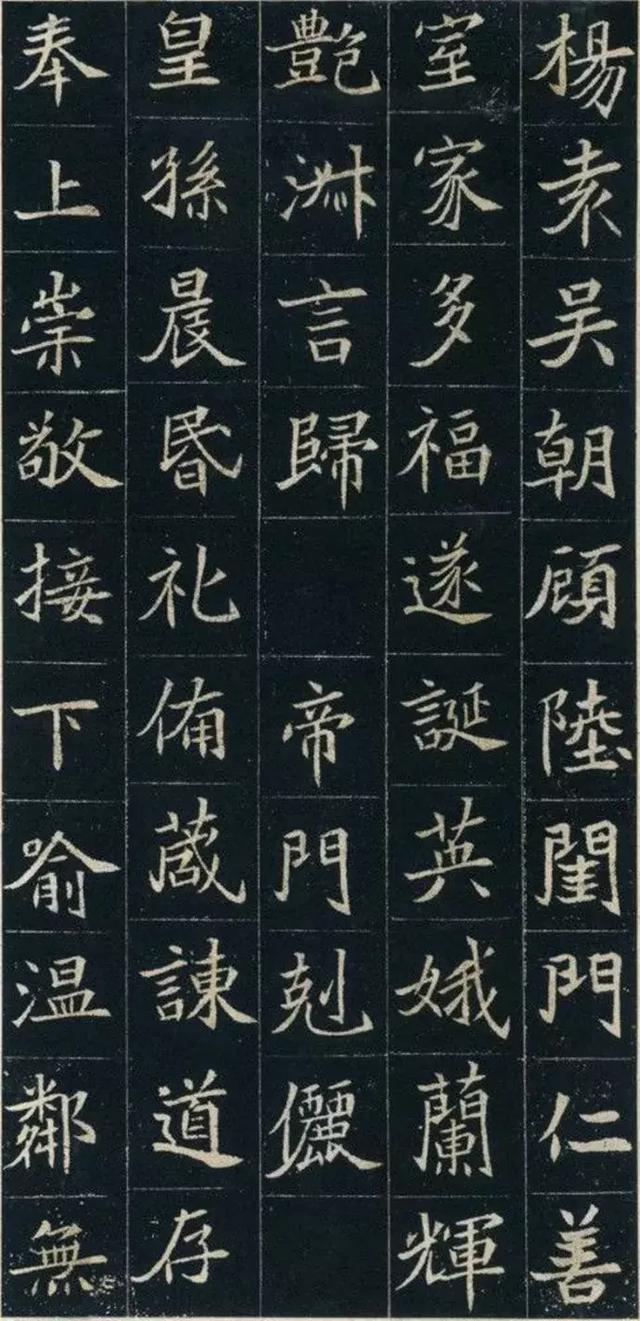 楊袁吴朝顧陸閨門仁善
室家多福遂誕英娥蘭輝
艷淑言歸 帝門剋儷
皇孫晨昬礼俻葴諫道存
奉上崇敬接下喻温鄰無